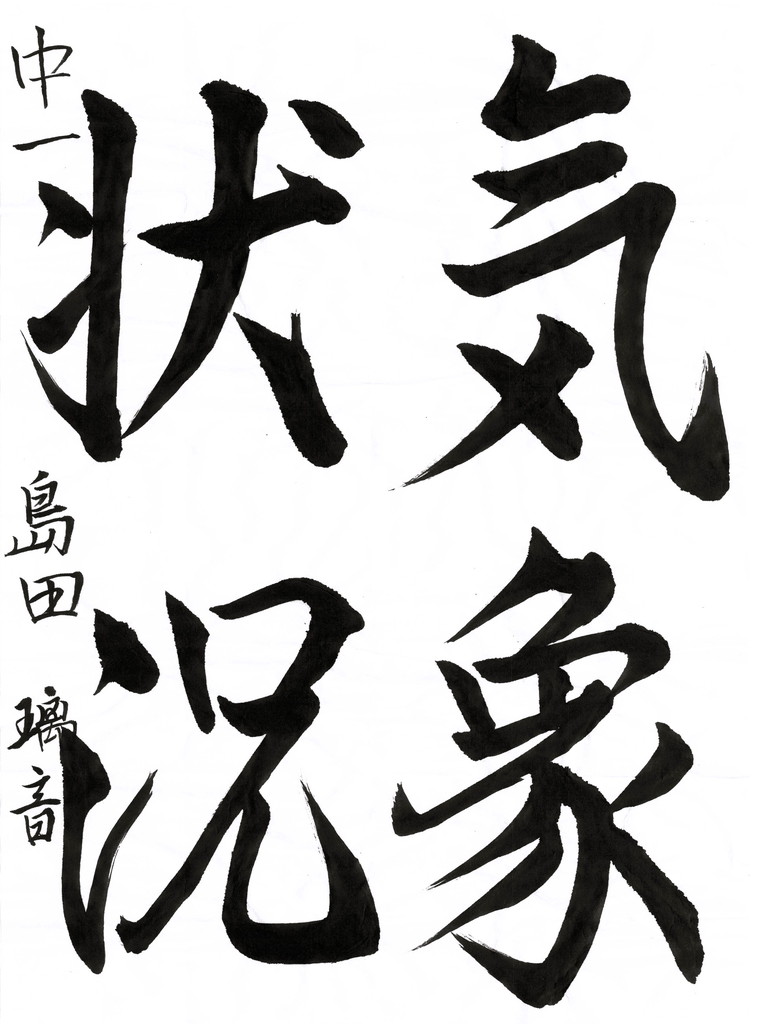 気象
状況
中一 島田 璃音